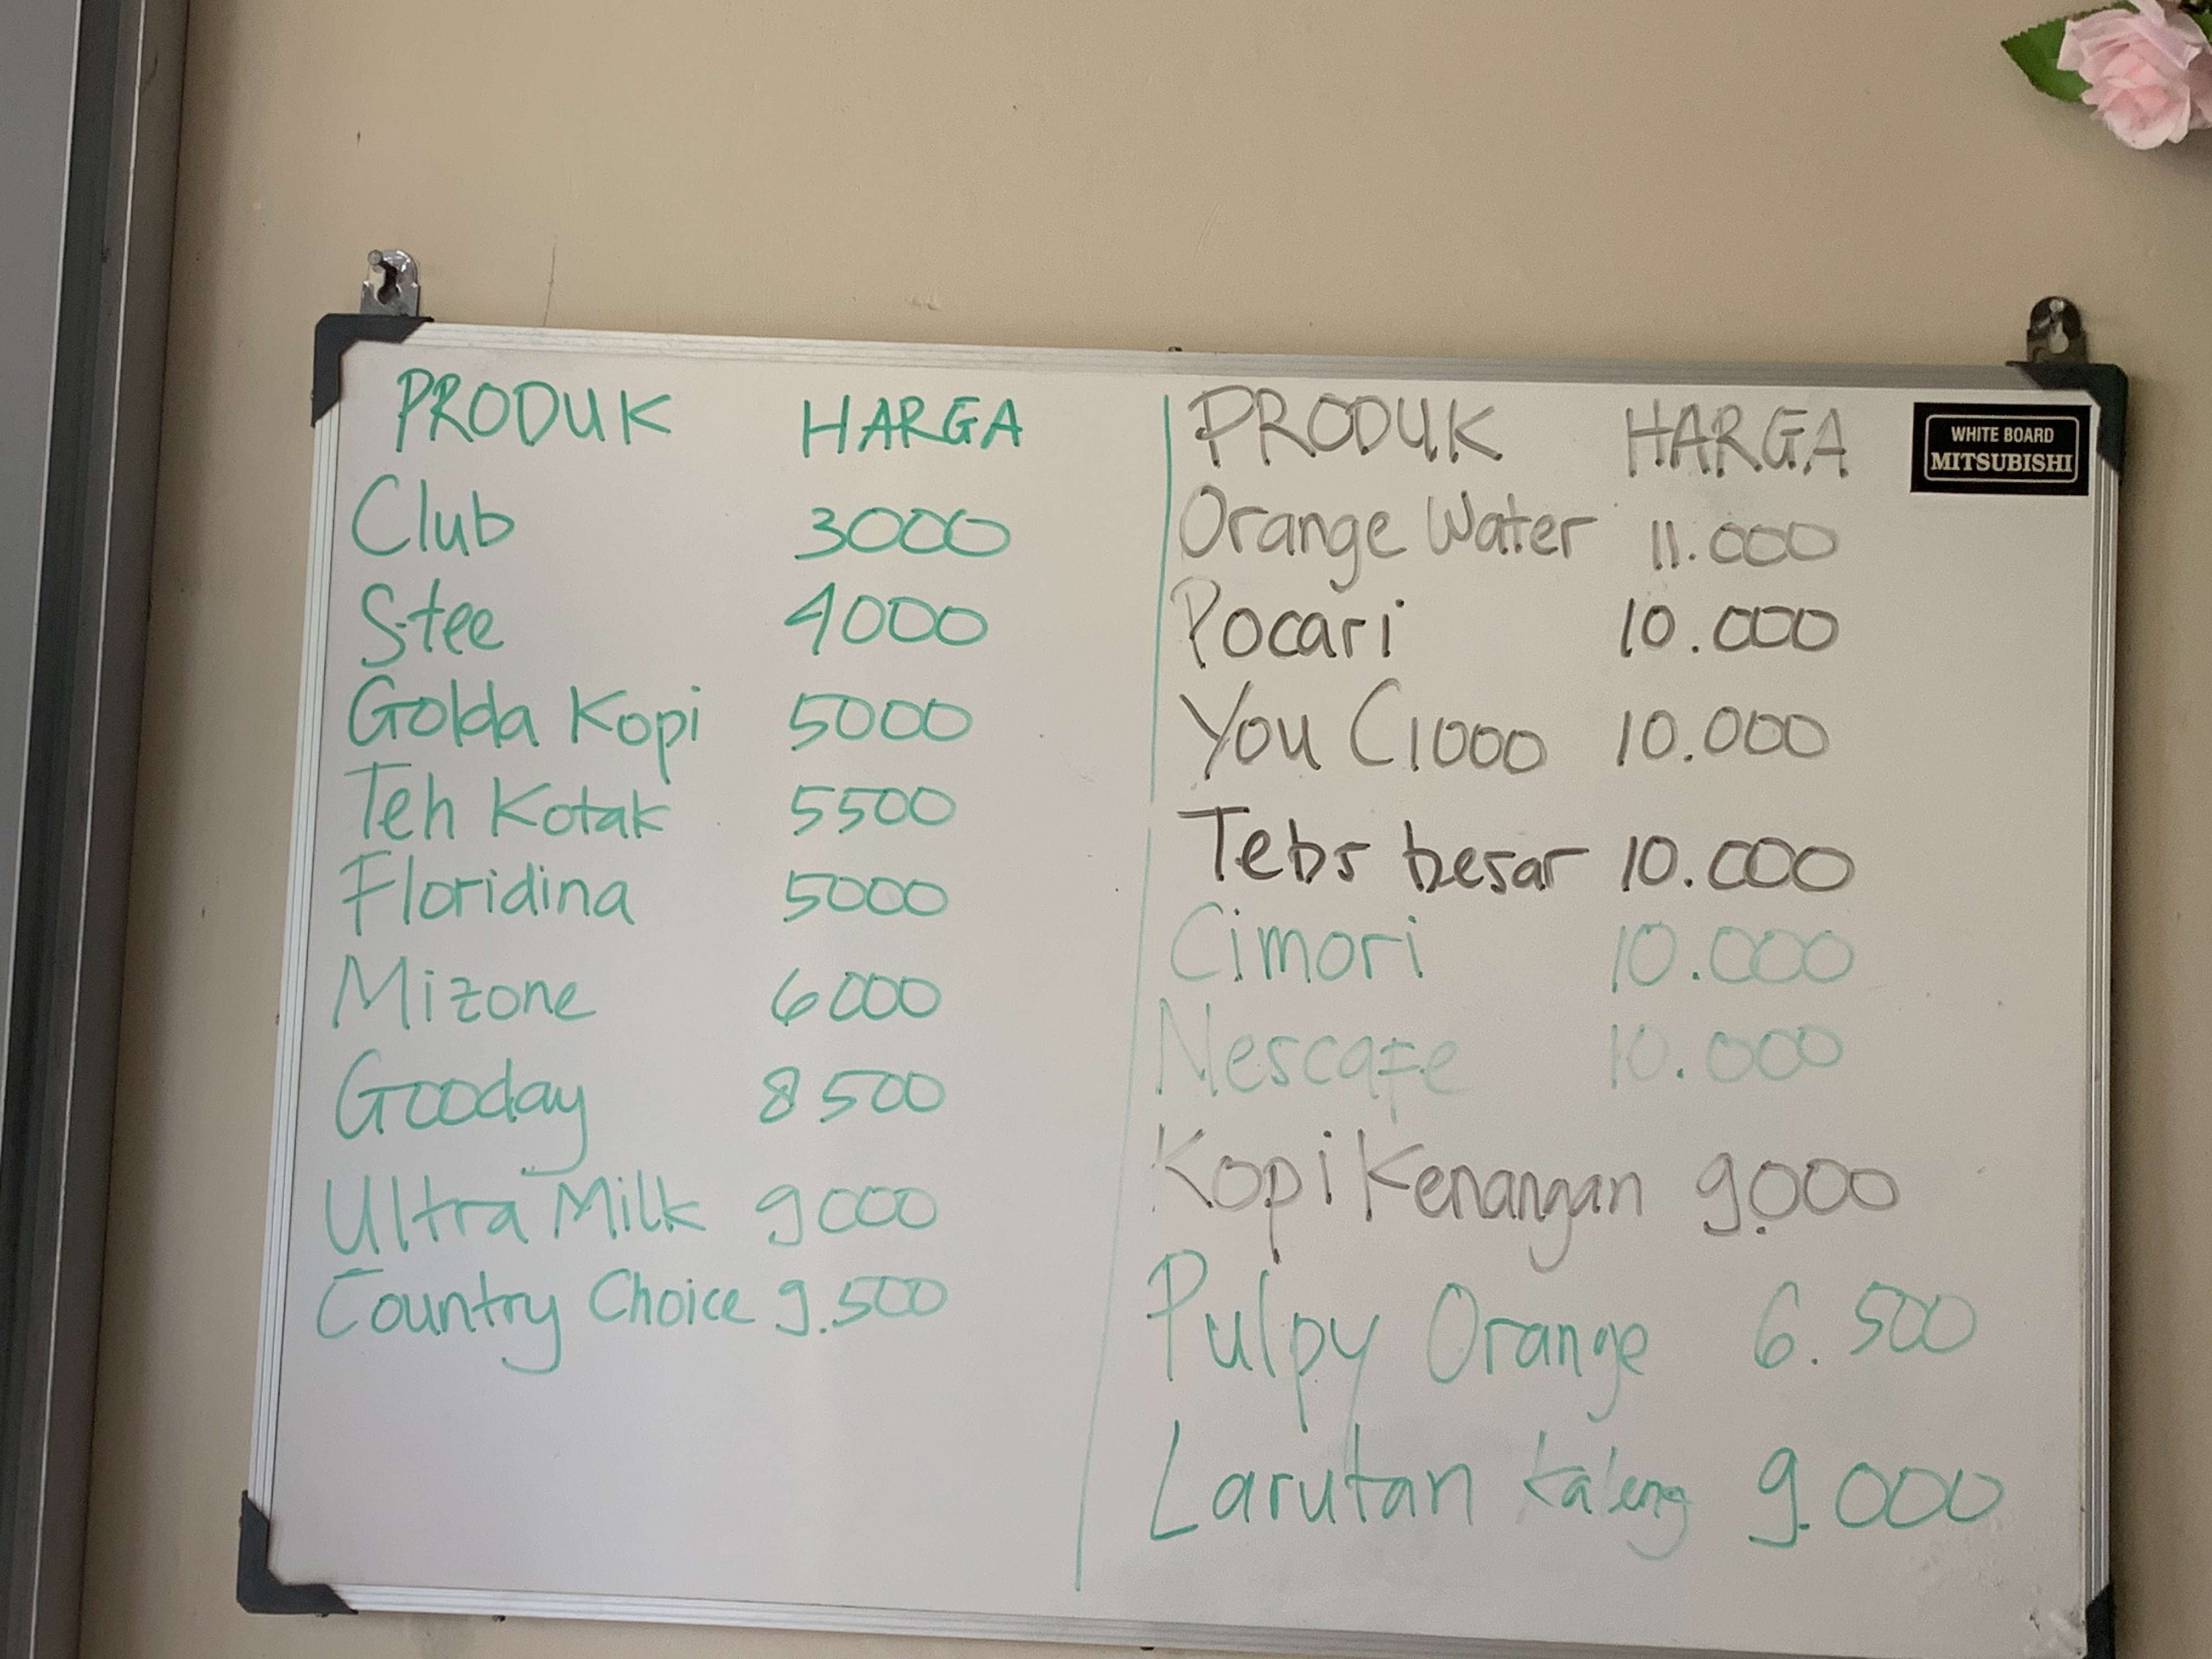 PRODUK HARGA
Club 3000
Stee 4000
Golda Kopi 5000
Teh Kotak 5500
Floridina 5000
Mizone 6000
Gooday 8500
Ultra Milk 9000
Country Choice 9.500
PRODUK HARGA
WHITE BOARD
MITSUBISHI
Orange Water 11.000
Pocari 10.000
You C1000 10.000
Tebs besar 10.000
Cimori 10.000
Nescafe 10.000
Kopi Kenangan 9.000
Pulpy Orange 6.500
Larutan kaleng 9.000